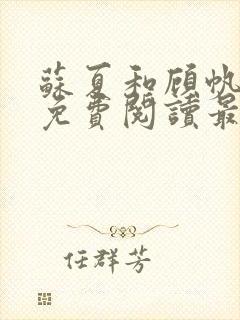 蘇夏和顧帆
免費閱讀最
任群芳